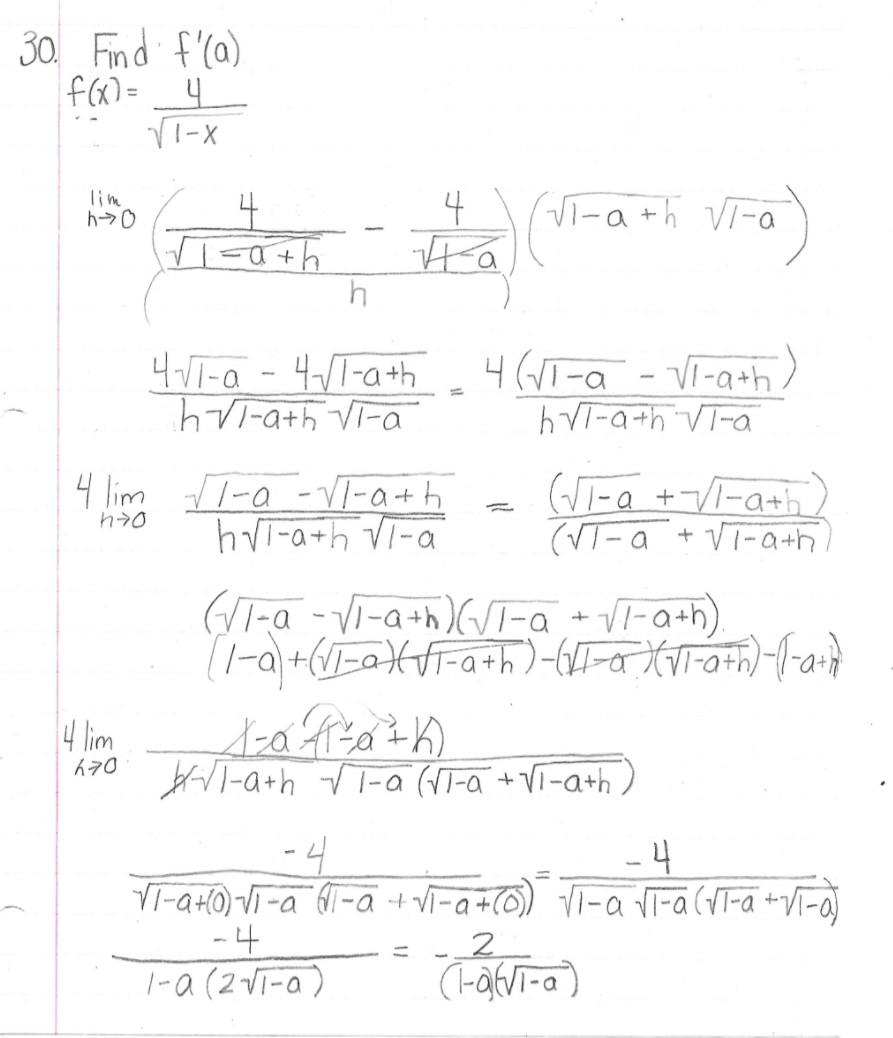 30. Find f'(a)
f(x) = 4/√(1-x)
lim h→0 ((4/√(1-a+h) - 4/√(1-a))/h)(√(1-a+h) √(1-a))
(4√(1-a) - 4√(1-a+h))/(h√(1-a+h) √(1-a)) = 4(√(1-a) - √(1-a+h))/(h√(1-a+h) √(1-a))
4 lim h→0 (√(1-a) - √(1-a+h))/(h√(1-a+h) √(1-a)) = (√(1-a) + √(1-a+h))/(√(1-a) + √(1-a+h))
(√(1-a) - √(1-a+h))(√(1-a) + √(1-a+h))
(1-a)+(√(1-a))(√(1-a+h))-(√(1-a))(√(1-a+h))-(1-a+h)
4 lim h→0 (1-a-(1-a+h))/(h√(1-a+h) √(1-a)(√(1-a) + √(1-a+h)))
-4/(√(1-a+(0)) √(1-a)(√(1-a) + √(1-a+(0)))) = -4/(√(1-a) √(1-a)(√(1-a) + √(1-a)))
-4/(1-a(2√(1-a))) = -2/((1-a)(√(1-a)))